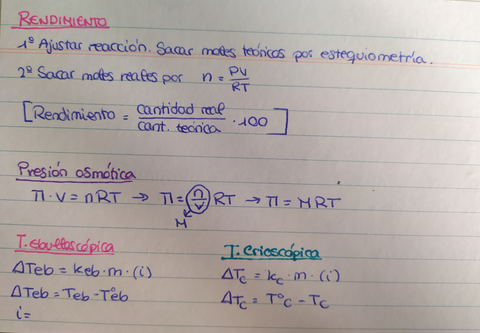 RENDIMIENTO
1º Ajustar reacción. Sacar moles teóricos por estequiometría.
2º Sacar moles reales por n = PV/RT
[Rendimiento = cantidad real/cant. teórica · 100]
Presión osmótica
Π · V = nRT → Π = (n/V) RT → Π = M RT
M
T. ebulloscópica
ΔTeb = Keb · m · (i)
ΔTeb = Teb - Tºeb
i =
T. crioscópica
ΔTc = Kc · m · (i)
ΔTc = Tºc - Tc